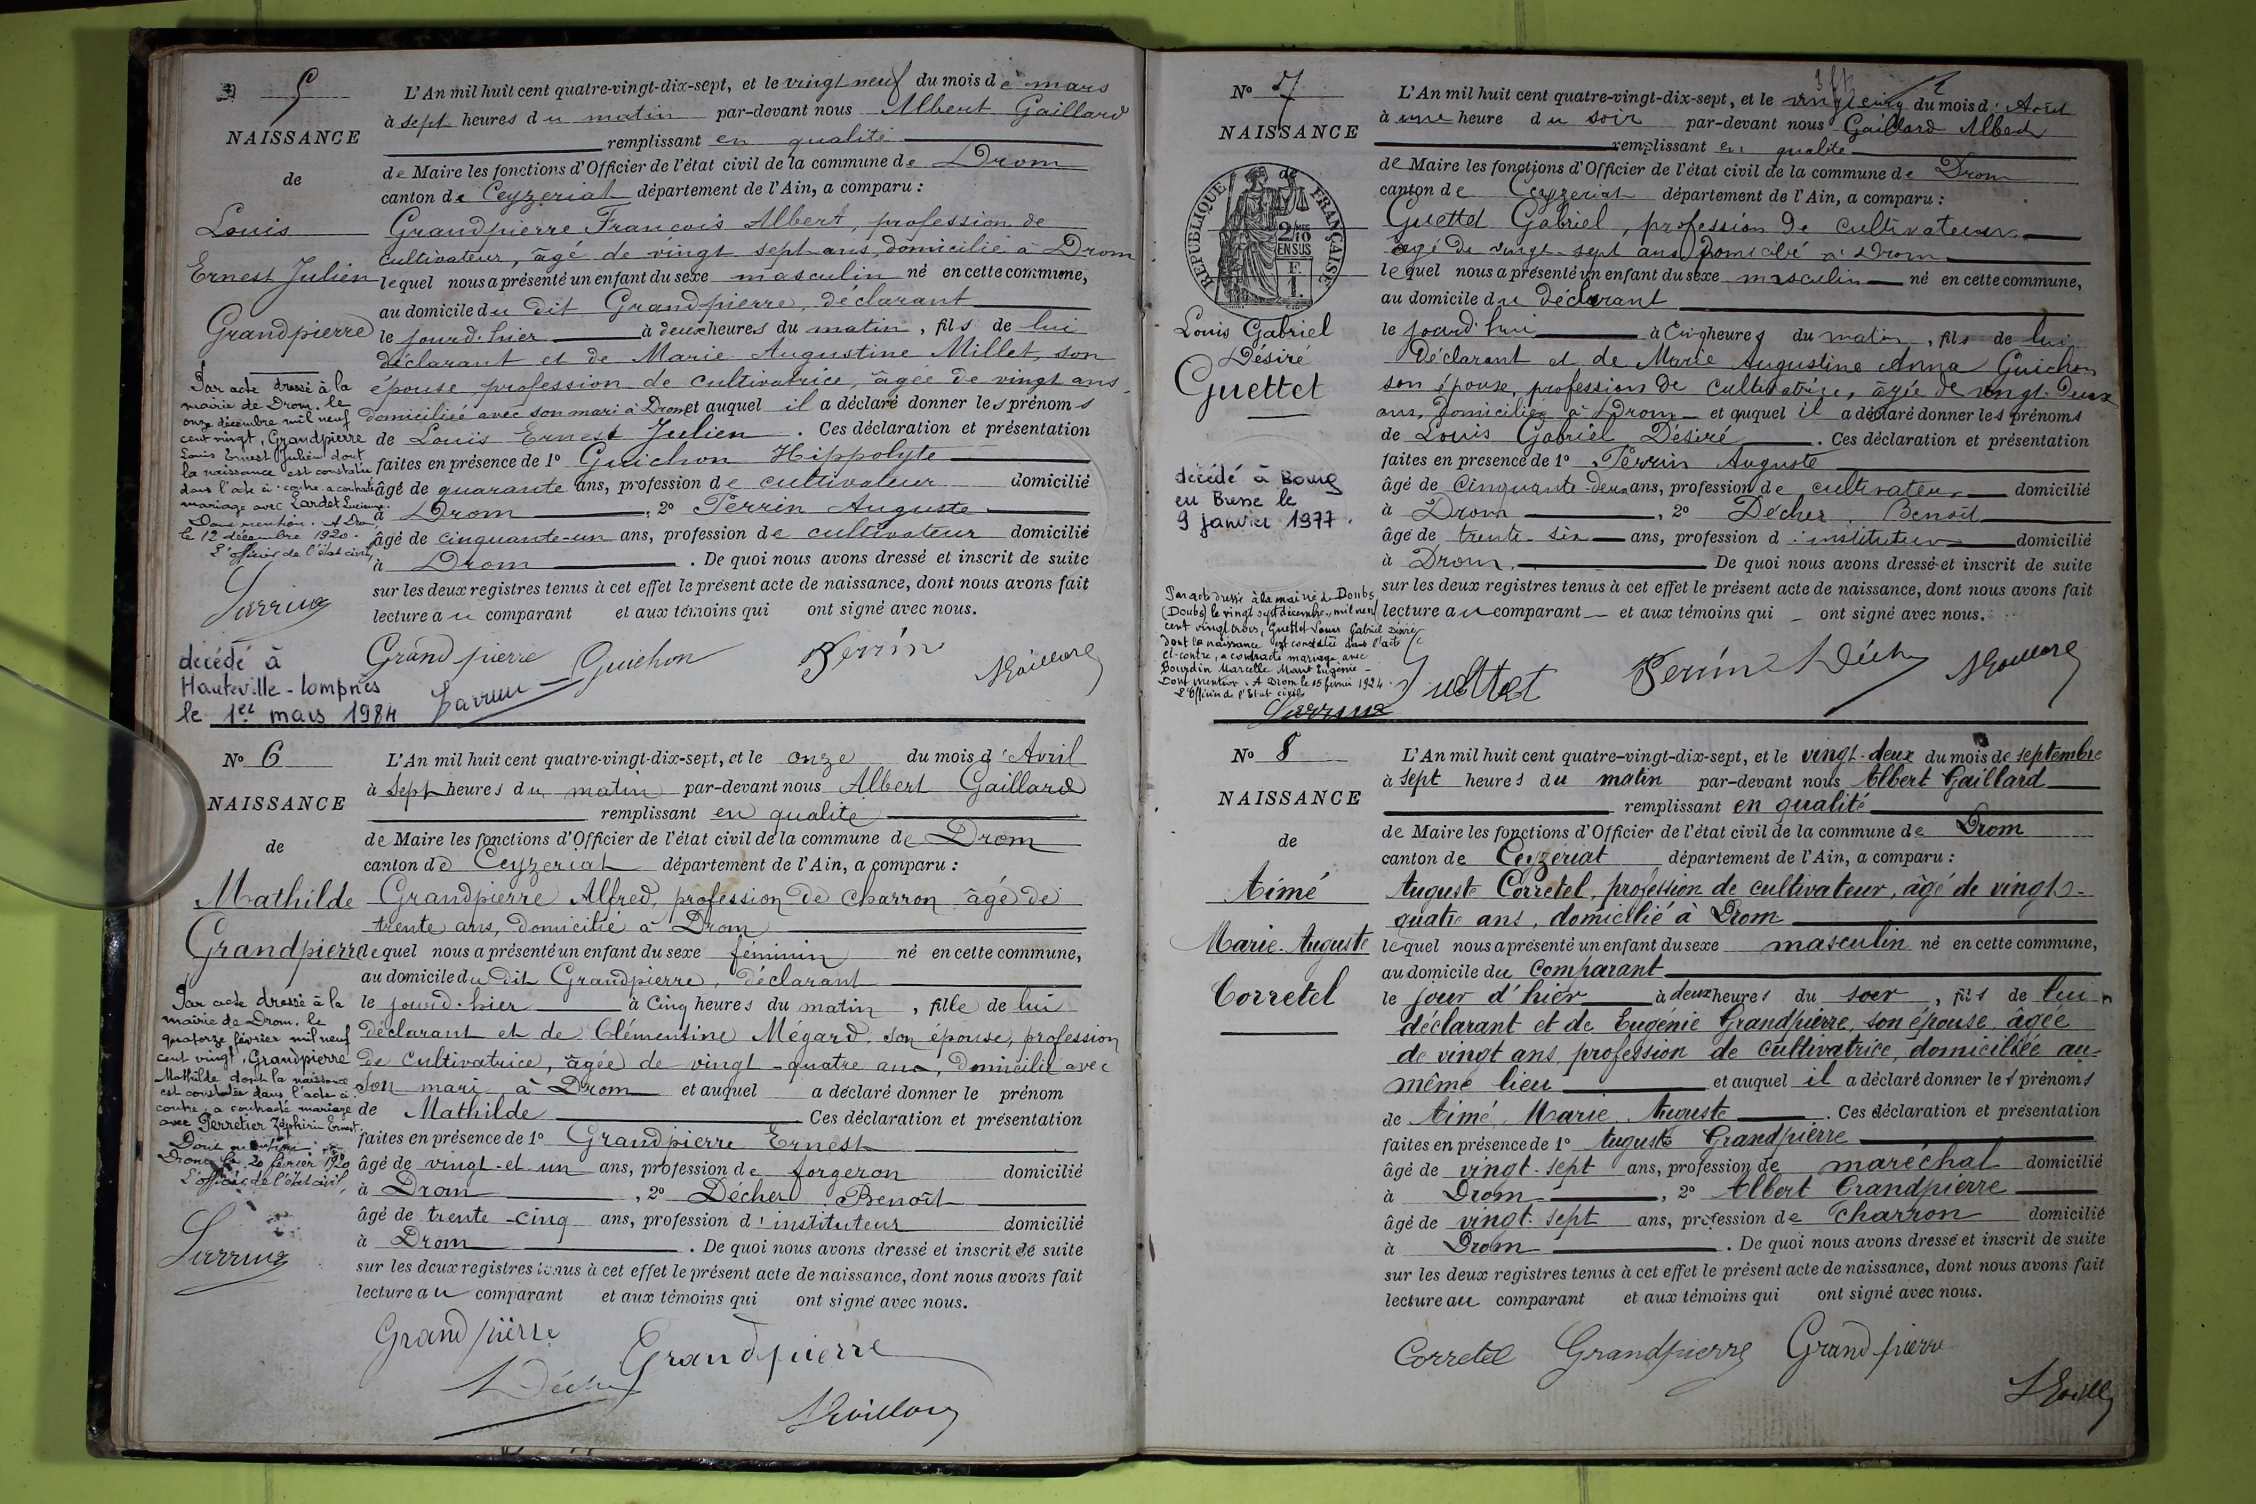 N° 5
NAISSANCE
de
Louis
Ernest Julien
Grandpierre
Par acte dressé à la
mairie de Drom, le
onze décembre mil neuf
cent vingt, Grandpierre
Louis Ernest Julien dont
la naissance est constatée
dans l'acte ci-contre a contracté
mariage avec Lardet
Dont mention. A Drom,
le 12 décembre 1920.
L'officier de l'état civil,
décédé à
Hauteville-Lompnès
le 1er mars 1984
L'An mil huit cent quatre-vingt-dix-sept, et le vingt neuf du mois de mars
à sept heures du matin par-devant nous Albert Gaillard
remplissant en qualité
de Maire les fonctions d'Officier de l'état civil de la commune de Drom
canton de Ceyzeriat département de l'Ain, a comparu :
Grandpierre François Albert, profession de
cultivateur, âgé de vingt sept ans, domicilié à Drom
lequel nous a présenté un enfant du sexe masculin né en cette commune,
au domicile du dit Grandpierre, déclarant
le jourd'hier à deux heures du matin, fils de lui
déclarant et de Marie Augustine Millet, son
épouse, profession de cultivatrice, âgée de vingt ans,
domiciliée avec son mari à Drom et auquel il a déclaré donner les prénoms
de Louis Ernest Julien. Ces déclaration et présentation
faites en présence de 1° Guichon Hippolyte
âgé de quarante ans, profession de cultivateur domicilié
à Drom, 2° Perrin Auguste
âgé de cinquante-un ans, profession de cultivateur domicilié
à Drom. De quoi nous avons dressé et inscrit de suite
sur les deux registres tenus à cet effet le présent acte de naissance, dont nous avons fait
lecture au comparant et aux témoins qui ont signé avec nous.
Grandpierre Guichon Perrin AGaillard
N° 6
NAISSANCE
de
Mathilde
Grandpierre
Par acte dressé à la
mairie de Drom, le
quatorze février mil neuf
cent vingt, Grandpierre
Mathilde dont la naissance
est constatée dans l'acte ci-
contre, a contracté mariage
avec Perretier Zéphirin Ernest.
Dont mention.
Drom, le 20 février 1920
L'officier de l'état civil,
L'An mil huit cent quatre-vingt-dix-sept, et le onze du mois d'Avril
à sept heures du matin par-devant nous Albert Gaillard
remplissant en qualité
de Maire les fonctions d'Officier de l'état civil de la commune de Drom
canton de Ceyzeriat département de l'Ain, a comparu :
Grandpierre Alfred, profession de charron âgé de
trente ans, domicilié à Drom
lequel nous a présenté un enfant du sexe féminin né en cette commune,
au domicile du dit Grandpierre, déclarant
le jourd'hier à cinq heures du matin, fille de lui
déclarant et de Clémentine Mégard, son épouse, profession
de cultivatrice, âgée de vingt-quatre ans, domicilié avec
son mari à Drom et auquel a déclaré donner le prénom
de Mathilde Ces déclaration et présentation
faites en présence de 1° Grandpierre Ernest
âgé de vingt-et un ans, profession de forgeron domicilié
à Drom, 2° Décher Benoît
âgé de trente-cinq ans, profession d'instituteur domicilié
à Drom. De quoi nous avons dressé et inscrit de suite
sur les deux registres tenus à cet effet le présent acte de naissance, dont nous avons fait
lecture au comparant et aux témoins qui ont signé avec nous.
Grandpierre Grandpierre
Décher AGaillard
N° 7
NAISSANCE
de
RÉPUBLIQUE FRANÇAISE
2/10
EN SUS
F.
1.
Louis Gabriel
Désiré
Guettet
décédé à Bourg
en Bresse le
9 janvier 1977.
Par acte dressé à la mairie de Doubs
(Doubs) le vingt sept décembre mil neuf
cent vingt trois, Guettet Louis Gabriel Désiré
dont la naissance est constatée dans l'acte
ci-contre, a contracté mariage avec
Bourdin Marcelle Marie Eugénie.
Dont mention. A Drom le 15 février 1924.
L'Officier de l'Etat civil
L'An mil huit cent quatre-vingt-dix-sept, et le vingt cinq du mois d'Août
à une heure du soir par-devant nous Gaillard Albert
remplissant en qualité
de Maire les fonctions d'Officier de l'état civil de la commune de Drom
canton de Ceyzeriat département de l'Ain, a comparu :
Guettet Gabriel, profession de cultivateur
âgé de vingt-sept ans domicilié à Drom
lequel nous a présenté un enfant du sexe masculin né en cette commune,
au domicile du déclarant
le jourd'hui à cinq heures du matin, fils de lui
déclarant et de Marie Augustine Anna Guichon
son épouse, profession de cultivatrice, âgée de vingt-deux
ans, domiciliée à Drom et auquel il a déclaré donner les prénoms
de Louis Gabriel Désiré. Ces déclaration et présentation
faites en présence de 1° Perrin Auguste
âgé de cinquante-deux ans, profession de cultivateur domicilié
à Drom, 2° Décher Benoît
âgé de trente-six ans, profession d'instituteur domicilié
à Drom. De quoi nous avons dressé et inscrit de suite
sur les deux registres tenus à cet effet le présent acte de naissance, dont nous avons fait
lecture au comparant et aux témoins qui ont signé avec nous.
Guettet Perrin Décher AGaillard
N° 8
NAISSANCE
de
Aimé
Marie-Auguste
Corretel
L'An mil huit cent quatre-vingt-dix-sept, et le vingt-deux du mois de septembre
à sept heures du matin par-devant nous Albert Gaillard
remplissant en qualité
de Maire les fonctions d'Officier de l'état civil de la commune de Drom
canton de Ceyzériat département de l'Ain, a comparu :
Auguste Corretel, profession de cultivateur, âgé de vingt-
quatre ans, domicilié à Drom
lequel nous a présenté un enfant du sexe masculin né en cette commune,
au domicile du comparant
le jour d'hier à deux heures du soir, fils de lui
déclarant et de Eugénie Grandpierre, son épouse, âgée
de vingt ans, profession de cultivatrice, domiciliée au
même lieu et auquel il a déclaré donner les prénoms
de Aimé, Marie, Auguste. Ces déclaration et présentation
faites en présence de 1° Auguste Grandpierre
âgé de vingt-sept ans, profession de maréchal domicilié
à Drom, 2° Albert Grandpierre
âgé de vingt-sept ans, profession de charron domicilié
à Drom. De quoi nous avons dressé et inscrit de suite
sur les deux registres tenus à cet effet le présent acte de naissance, dont nous avons fait
lecture au comparant et aux témoins qui ont signé avec nous.
Corretel Grandpierre Grandpierre